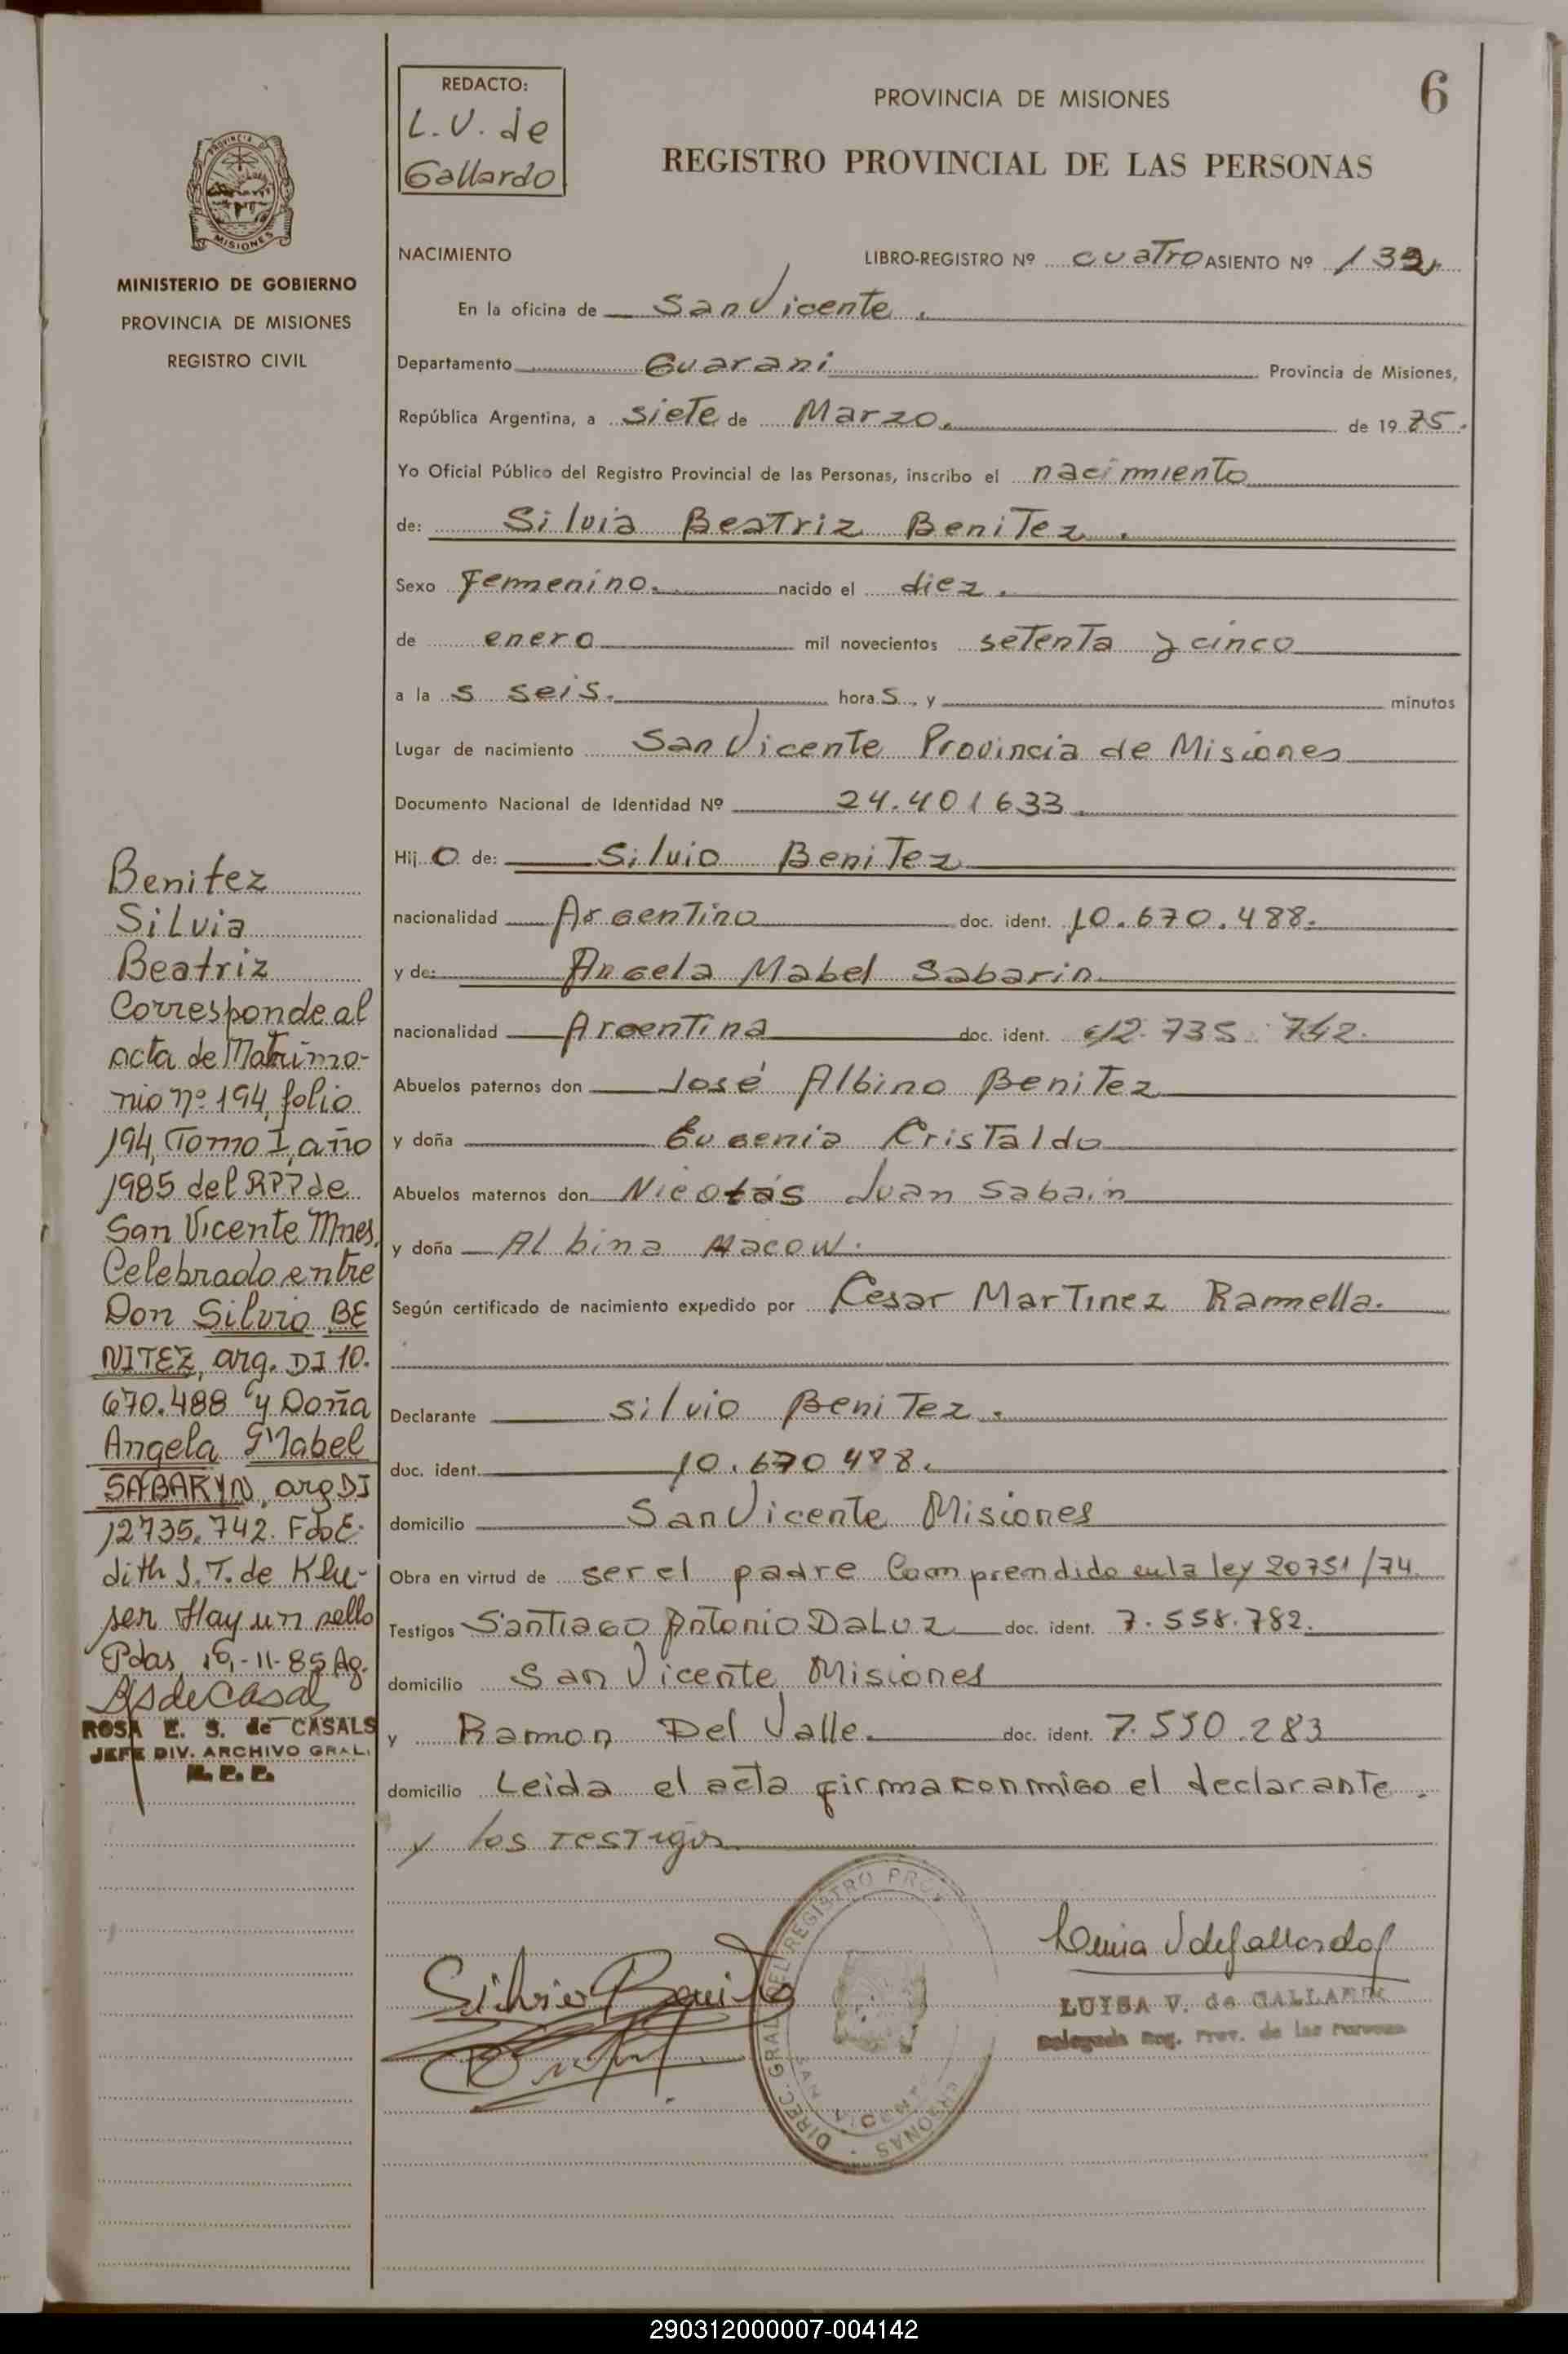 6
REDACTO:
L.V. de
Gallardo
PROVINCIA DE MISIONES
REGISTRO PROVINCIAL DE LAS PERSONAS
PROVINCIA D
MISIONES
MINISTERIO DE GOBIERNO
PROVINCIA DE MISIONES
REGISTRO CIVIL
NACIMIENTO LIBRO-REGISTRO Nº cuatro ASIENTO Nº
En la oficina de San Vicente.
Departamento Guarani Provincia de Misiones,
República Argentina, a siete de Marzo. de 19 75.
Yo Oficial Público del Registro Provincial de las Personas, inscribo el nacimiento
de: Silvia Beatriz Benitez.
Sexo Femenino. nacido el diez.
de enero mil novecientos setenta y cinco
a la s seis. hora s, y minutos
Lugar de nacimiento San Vicente Provincia de Misiones
Documento Nacional de Identidad Nº 24.401633.
Hij o de: Silvio Benitez
nacionalidad Argentina doc. ident. 10.670.488.
y de: Angela Mabel Sabarin
nacionalidad Argentina doc. ident. 12.735.742.
Abuelos paternos don José Albino Benitez
y doña Eugenia Cristaldo
Abuelos maternos don Nicolás Juan Sabain
y doña Albina Macow.
Según certificado de nacimiento expedido por Cesar Martinez Ramella.
Declarante Silvio Benitez.
doc. ident. 10.670488.
domicilio San Vicente Misiones
Obra en virtud de ser el padre Comprendido en la ley 20751/74.
Testigos Santiago Antonio DaLuz doc. ident. 7.558.782.
domicilio San Vicente Misiones
y Ramon Del Valle. doc. ident. 7.550.283
domicilio Leida el acta firma conmigo el declarante.
y los testigos
Benitez
Silvia
Beatriz
Corresponde al
acta de Matrimo-
nio nº 194, folio
194, Tomo I, año
1985 del RPP de
San Vicente Mnes,
Celebrado entre
Don Silvio BE
NITEZ, arg. DI 10.
670.488 y Doña
Angela Mabel
SABARYN, arg DI
12735.742. Fdo E-
dith S. T. de Klu-
ser Hay un sello
Pdas, 19-11-85 Ag.
ROSA E. S. de CASALS
JEFE DIV. ARCHIVO GRAL.
Silvio Benitez
DIREC. GRAL. DEL REGISTRO PROV
PERSONAS
SAN VICENTE
Luisa V de Gallardo
LUISA V. de GALLARDO
Delegada Reg. Prov. de las Personas
290312000007-004142